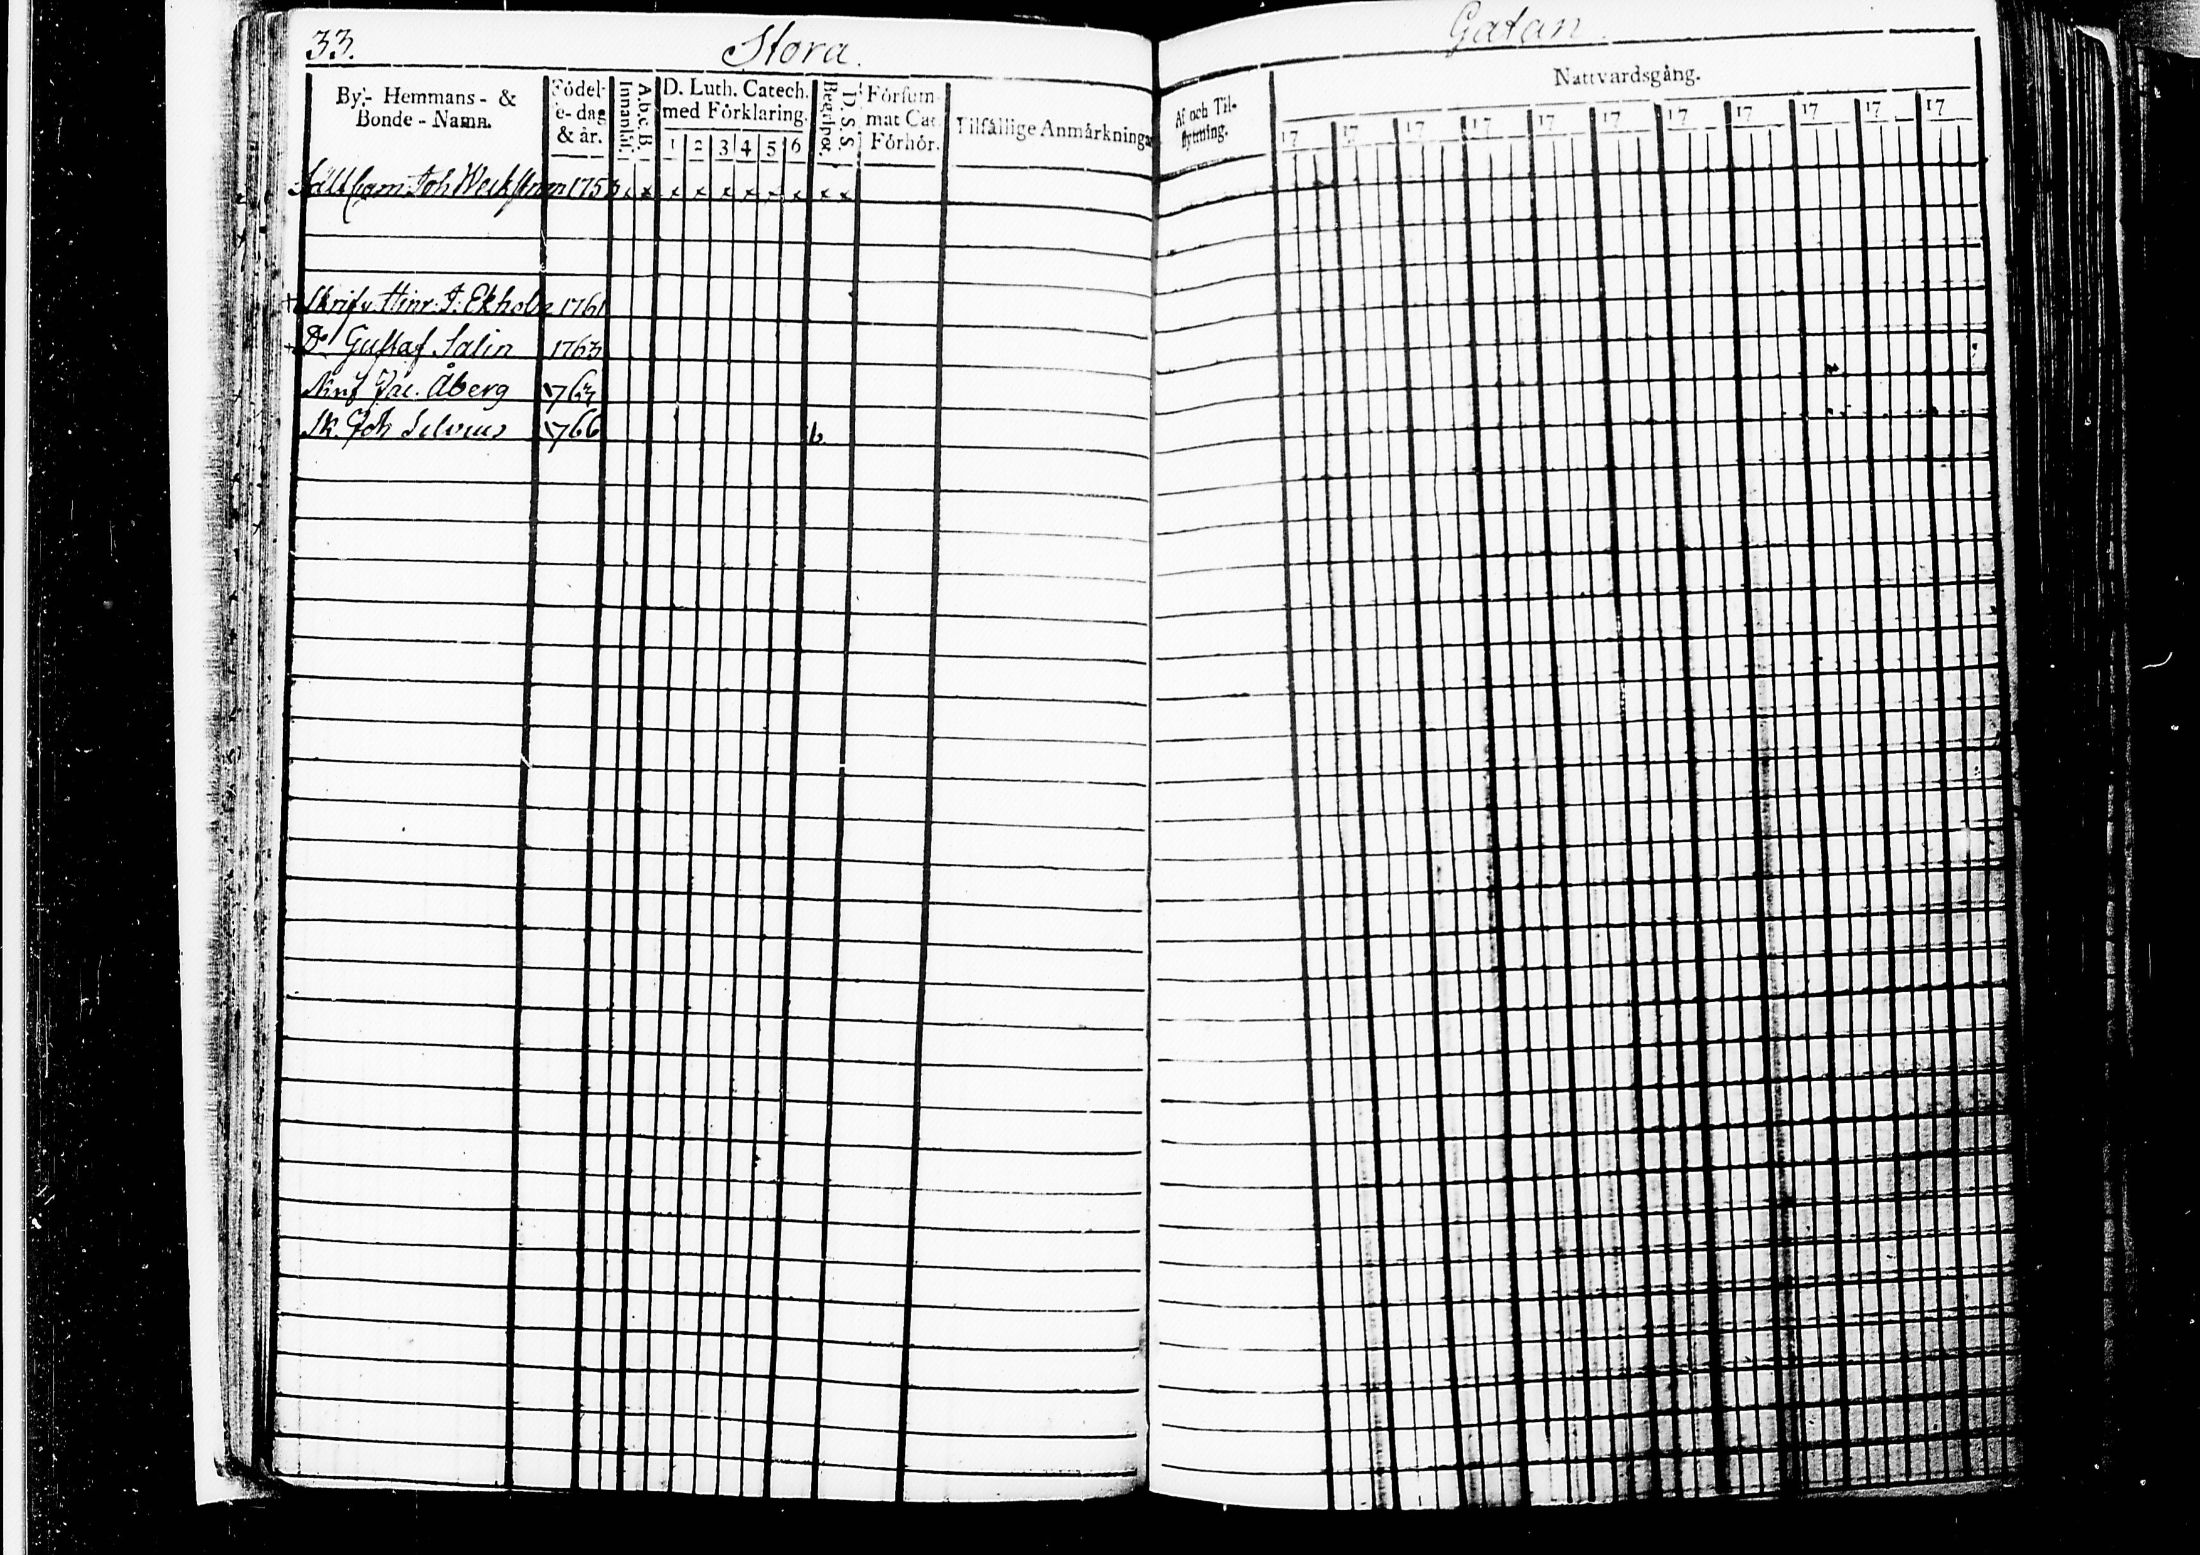 33. Stora. Gatan.
By:- Hemmans- & Bonde-Namn.
Födelse-dag & år.
Innanläsn.
A.b.c.B.
D. Luth. Catech. med Förklaring.
1 2 3 4 5 6
Begrepet.
D.S.S.
Försummat Cat Förhör.
Tilfällige Anmärkningar
Af och Tilflyttning.
Nattvardsgång.
17 17 17 17 17 17 17 17 17 17 17
Joh 1753 x x x x x x x x x x
+ Skrifv. Hinr. J. Ekholm 1761
+ Do Gustaf Salin 1763
Skrif Jac. Åberg 1763
Sk. Joh 1766 b